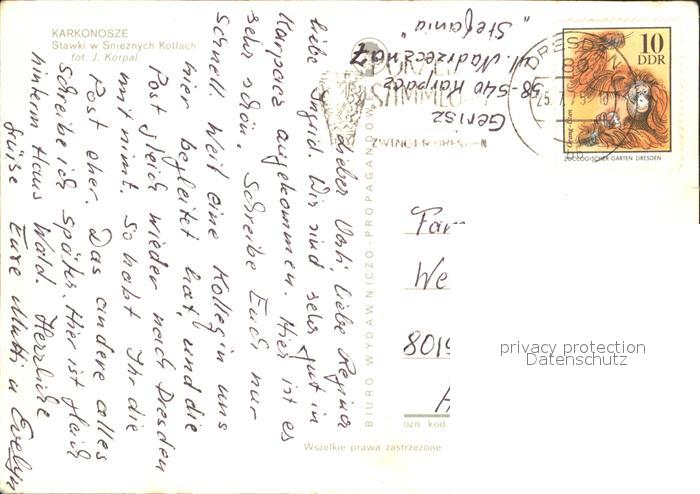 KARKONOSZE
Stawki w Śnieżnych Kotłach
fot. J. Korpal
Lieber Uschi, liebe Regina
liebe Ingrid. Wir sind sehr gut in
Karpacz angekommen. Hier ist es
sehr schön. Schreibe Euch nur
schnell weil eine Kollegin uns
hier begleitet hat, und die
Post gleich wieder nach Dresden
mit nimt. So habt Ihr die
Post eher. Das andere alles
schreibe ich später. Hier ist gleich
hinterm Haus Wald. Herzliche
Grüsse Eure Mutti u Evelyn
Gerisz
58-540 Karpacz
ul Nadrzeczna 7
"Stefania"
BIURO WYDAWNICZO-PROPAGANDOWE
DRESDEN
80
25.7.75
ZWINGER DRESDEN
10
DDR
ZOOLOGISCHER GARTEN DRESDEN
Fam
We
8019
privacy protection
Datenschutz
ozn kod
Wszelkie prawa zastrzeżone